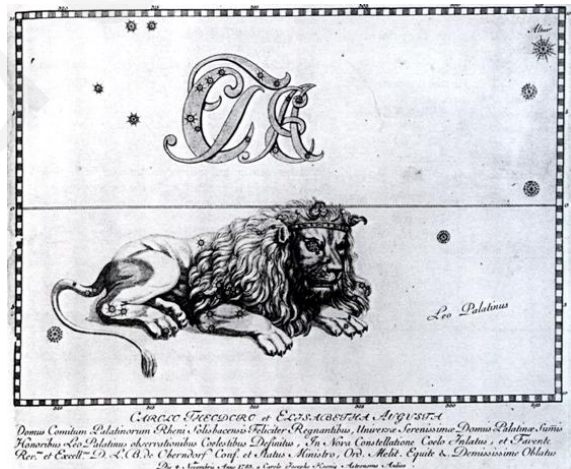 Altair
Leo Palatinus
CAROLO THEODORO et ELISABETHA AUGUSTA
Domus Comitum Palatinorum Rheni Solisbacensis Feliciter Regnantibus, Universæ Serenissimæ Domus Palatinæ Summis
Honoribus Leo Palatinus observationibus Coelestibus Definitus, In Nova Constellatione Coelo Inlatus, et Favente
et Excell D. L. B. de Oberndorf Conf. et Status Ministro, Ord. Melit. Equite & Demississime Oblatus
1785 a Carolo Josepho König Astronomo Aulico